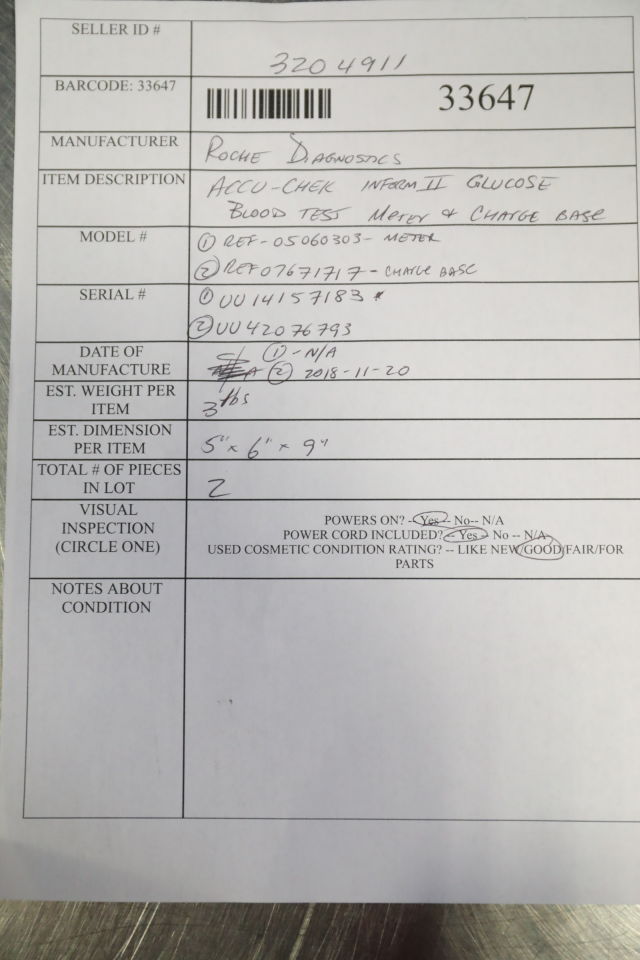 SELLER ID #
3204911
BARCODE: 33647
33647
MANUFACTURER
ROCHE DIAGNOSTICS
ITEM DESCRIPTION
ACCU-CHEK INFORM II GLUCOSE
BLOOD TEST METER & CHARGE BASE
MODEL #
① REF-05060303- METER
② REF07671717-CHARGE BASE
SERIAL #
① UU14157183
② UU42076793
DATE OF
MANUFACTURE
① - N/A
② 2018-11-20
EST. WEIGHT PER
ITEM
3 lbs
EST. DIMENSION
PER ITEM
5" x 6" x 9"
TOTAL # OF PIECES
IN LOT
2
VISUAL
INSPECTION
(CIRCLE ONE)
POWERS ON? -- Yes -- No-- N/A
POWER CORD INCLUDED? -- Yes -- No -- N/A
USED COSMETIC CONDITION RATING? -- LIKE NEW/GOOD/FAIR/FOR
PARTS
NOTES ABOUT
CONDITION